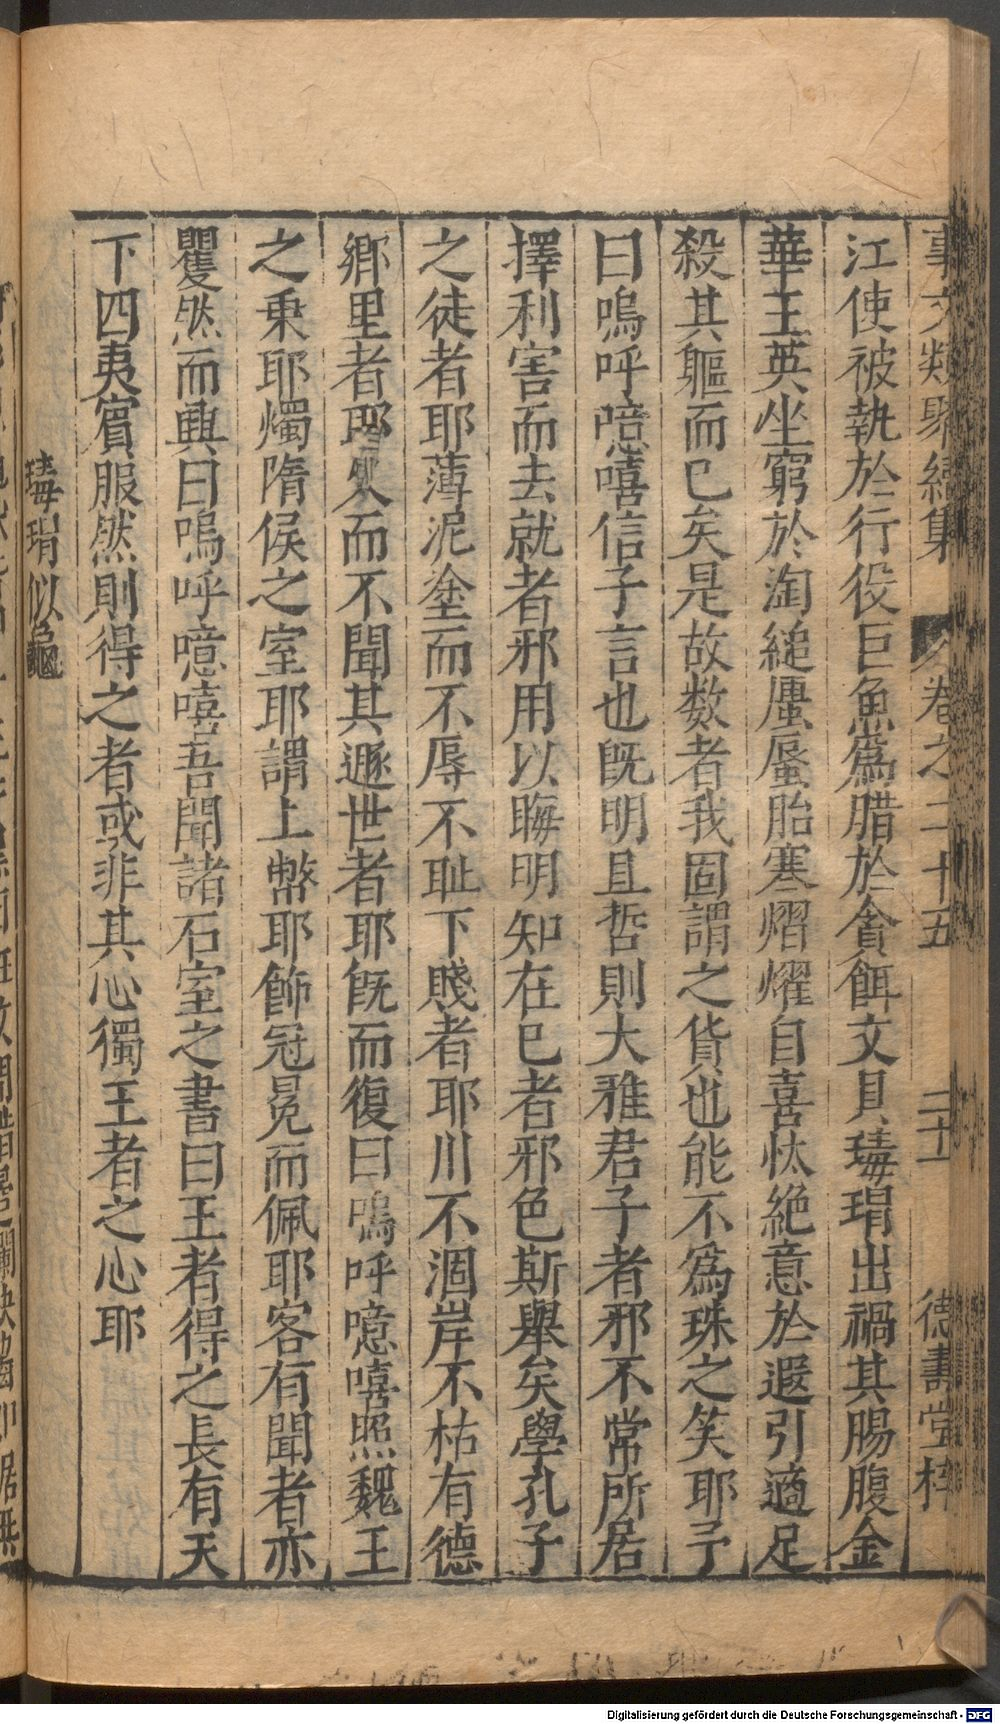 事文類聚續集 卷之二十五 二十一 德壽堂梓
江使被執於行役巨魚爲腊於貪餌文貝瑇瑁出禍其腸腹金
華王英坐窮於淘縋蠯蜃胎寒熠燿自喜忲絶意於遐引適足
殺其軀而已矣是故数者我固謂之貨也能不爲珠之笑耶予
曰嗚呼噫嘻信子言也旣明且哲則大雅君子者邪不常所居
擇利害而去就者邪用以晦明知在已者邪色斯舉矣學孔子
之徒者耶薄泥塗而不辱不耻下賤者耶川不涸岸不枯有德
鄉里者耶照人而不聞其遯世者耶旣而復曰嗚呼噫嘻照魏王
之乗耶燭隋侯之室耶謂上幣耶飾冠冕而佩耶客有聞者亦
瞿然而興曰嗚呼噫嘻吾聞諸石室之書曰王者得之長有天
下四夷賓服然則得之者或非其心獨王者之心耶
瑇瑁似龜
Digitalisierung gefördert durch die Deutsche Forschungsgemeinschaft - DFG